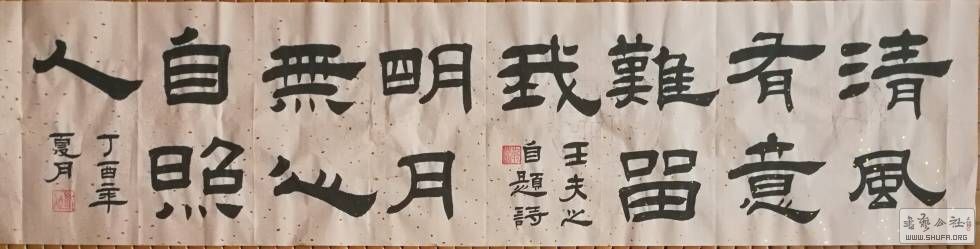 清風
有意
難留
我
王夫之
自題詩
明月
無心
自照
人
丁酉年
夏月
書藝公社
WWW.SHUFA.ORG